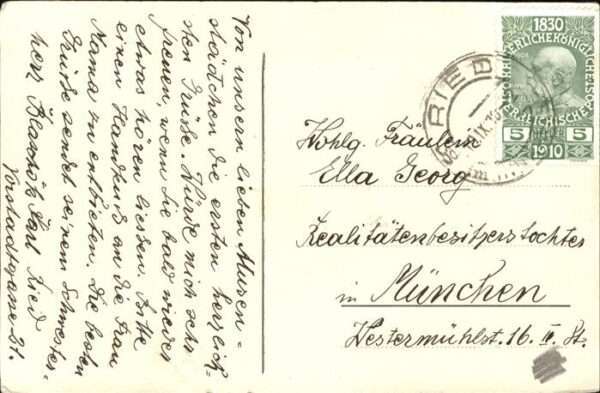 Von unsern lieben Musen-
städtchen die ersten herzlich-
sten Grüße. Würde mich sehr
freuen, wenn Sie bald wieder
etwas hören ließen. Bitte
einen Handkuß an die Frau
Mama zu entbieten. Die besten
Grüße sendet seinem Schwester-
herz Karl Ried
Vorstadtgasse 31.
1830
1910
5 5
RIED
Wohlg. Fräulein
Ella Georg
Realitätenbesitzerstochter
in München
Westermühlst. 16. II. St.